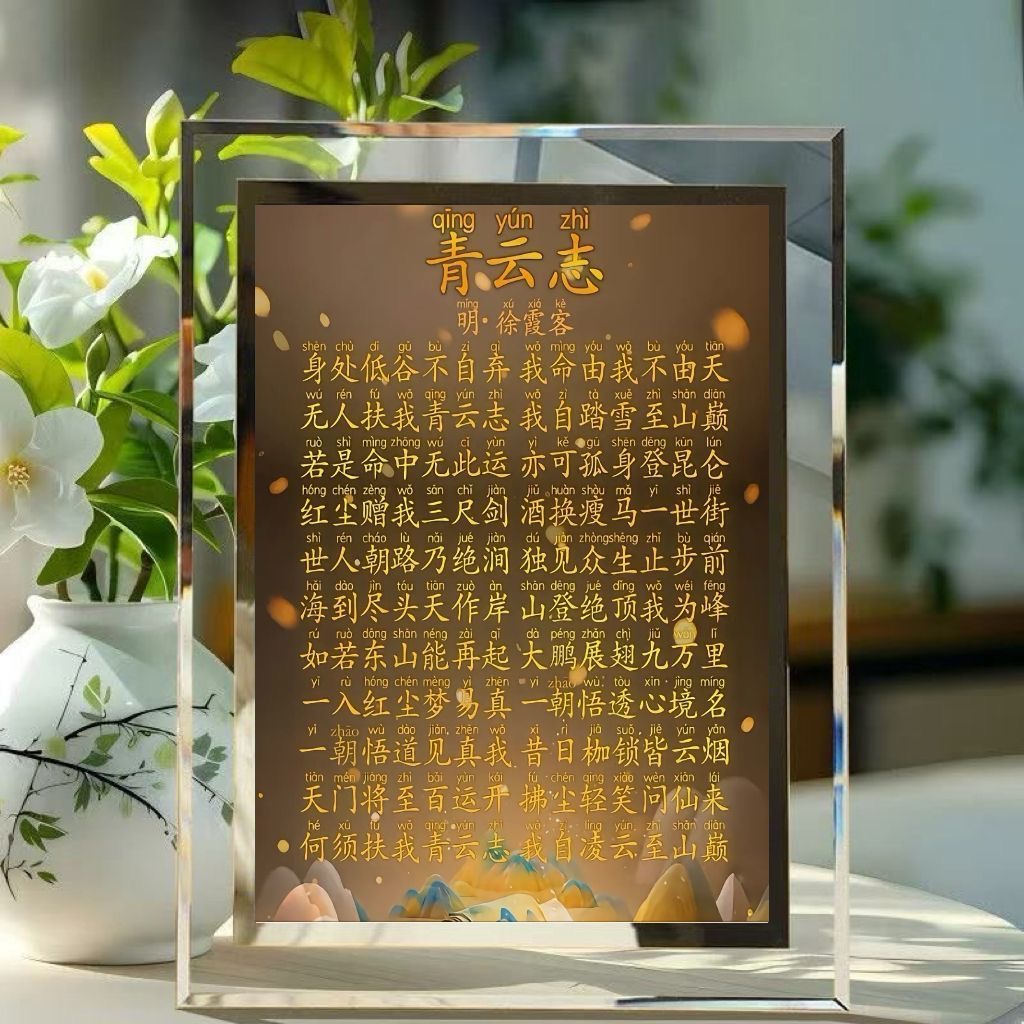 qīng yún zhì
青云志
míng xú xiá kè
明·徐霞客
shēn chù dī gǔ bù zì qì wǒ mìng yóu wǒ bù yóu tiān
身处低谷不自弃 我命由我不由天
wú rén fú wǒ qīng yún zhì wǒ zì tà xuě zhì shān diān
无人扶我青云志 我自踏雪至山巅
ruò shì mìng zhōng wú cǐ yùn yì kě gū shēn dēng kūn lún
若是命中无此运 亦可孤身登昆仑
hóng chén zèng wǒ sān chǐ jiàn jiǔ huàn shòu mǎ yī shì jiē
红尘赠我三尺剑 酒换瘦马一世街
shì rén cháo lù nǎi jué jiàn dú jiàn zhòng shēng zhǐ bù qián
世人朝路乃绝涧 独见众生止步前
hǎi dào jìn tóu tiān zuò àn shān dēng jué dǐng wǒ wéi fēng
海到尽头天作岸 山登绝顶我为峰
rú ruò dōng shān néng zài qǐ dà péng zhǎn chì jiǔ wàn lǐ
如若东山能再起 大鹏展翅九万里
yī rù hóng chén mèng yì zhēn yī zhāo wù tòu xīn jìng míng
一入红尘梦易真 一朝悟透心境名
yī zhāo wù dào jiàn zhēn wǒ xī rì jiā suǒ jiē yún yān
一朝悟道见真我 昔日枷锁皆云烟
tiān mén jiāng zhì bǎi yùn kāi fú chén qīng xiào wèn xiān lái
天门将至百运开 拂尘轻笑问仙来
hé xū fú wǒ qīng yún zhì wǒ zì líng yún zhì shān diān
何须扶我青云志 我自凌云至山巅